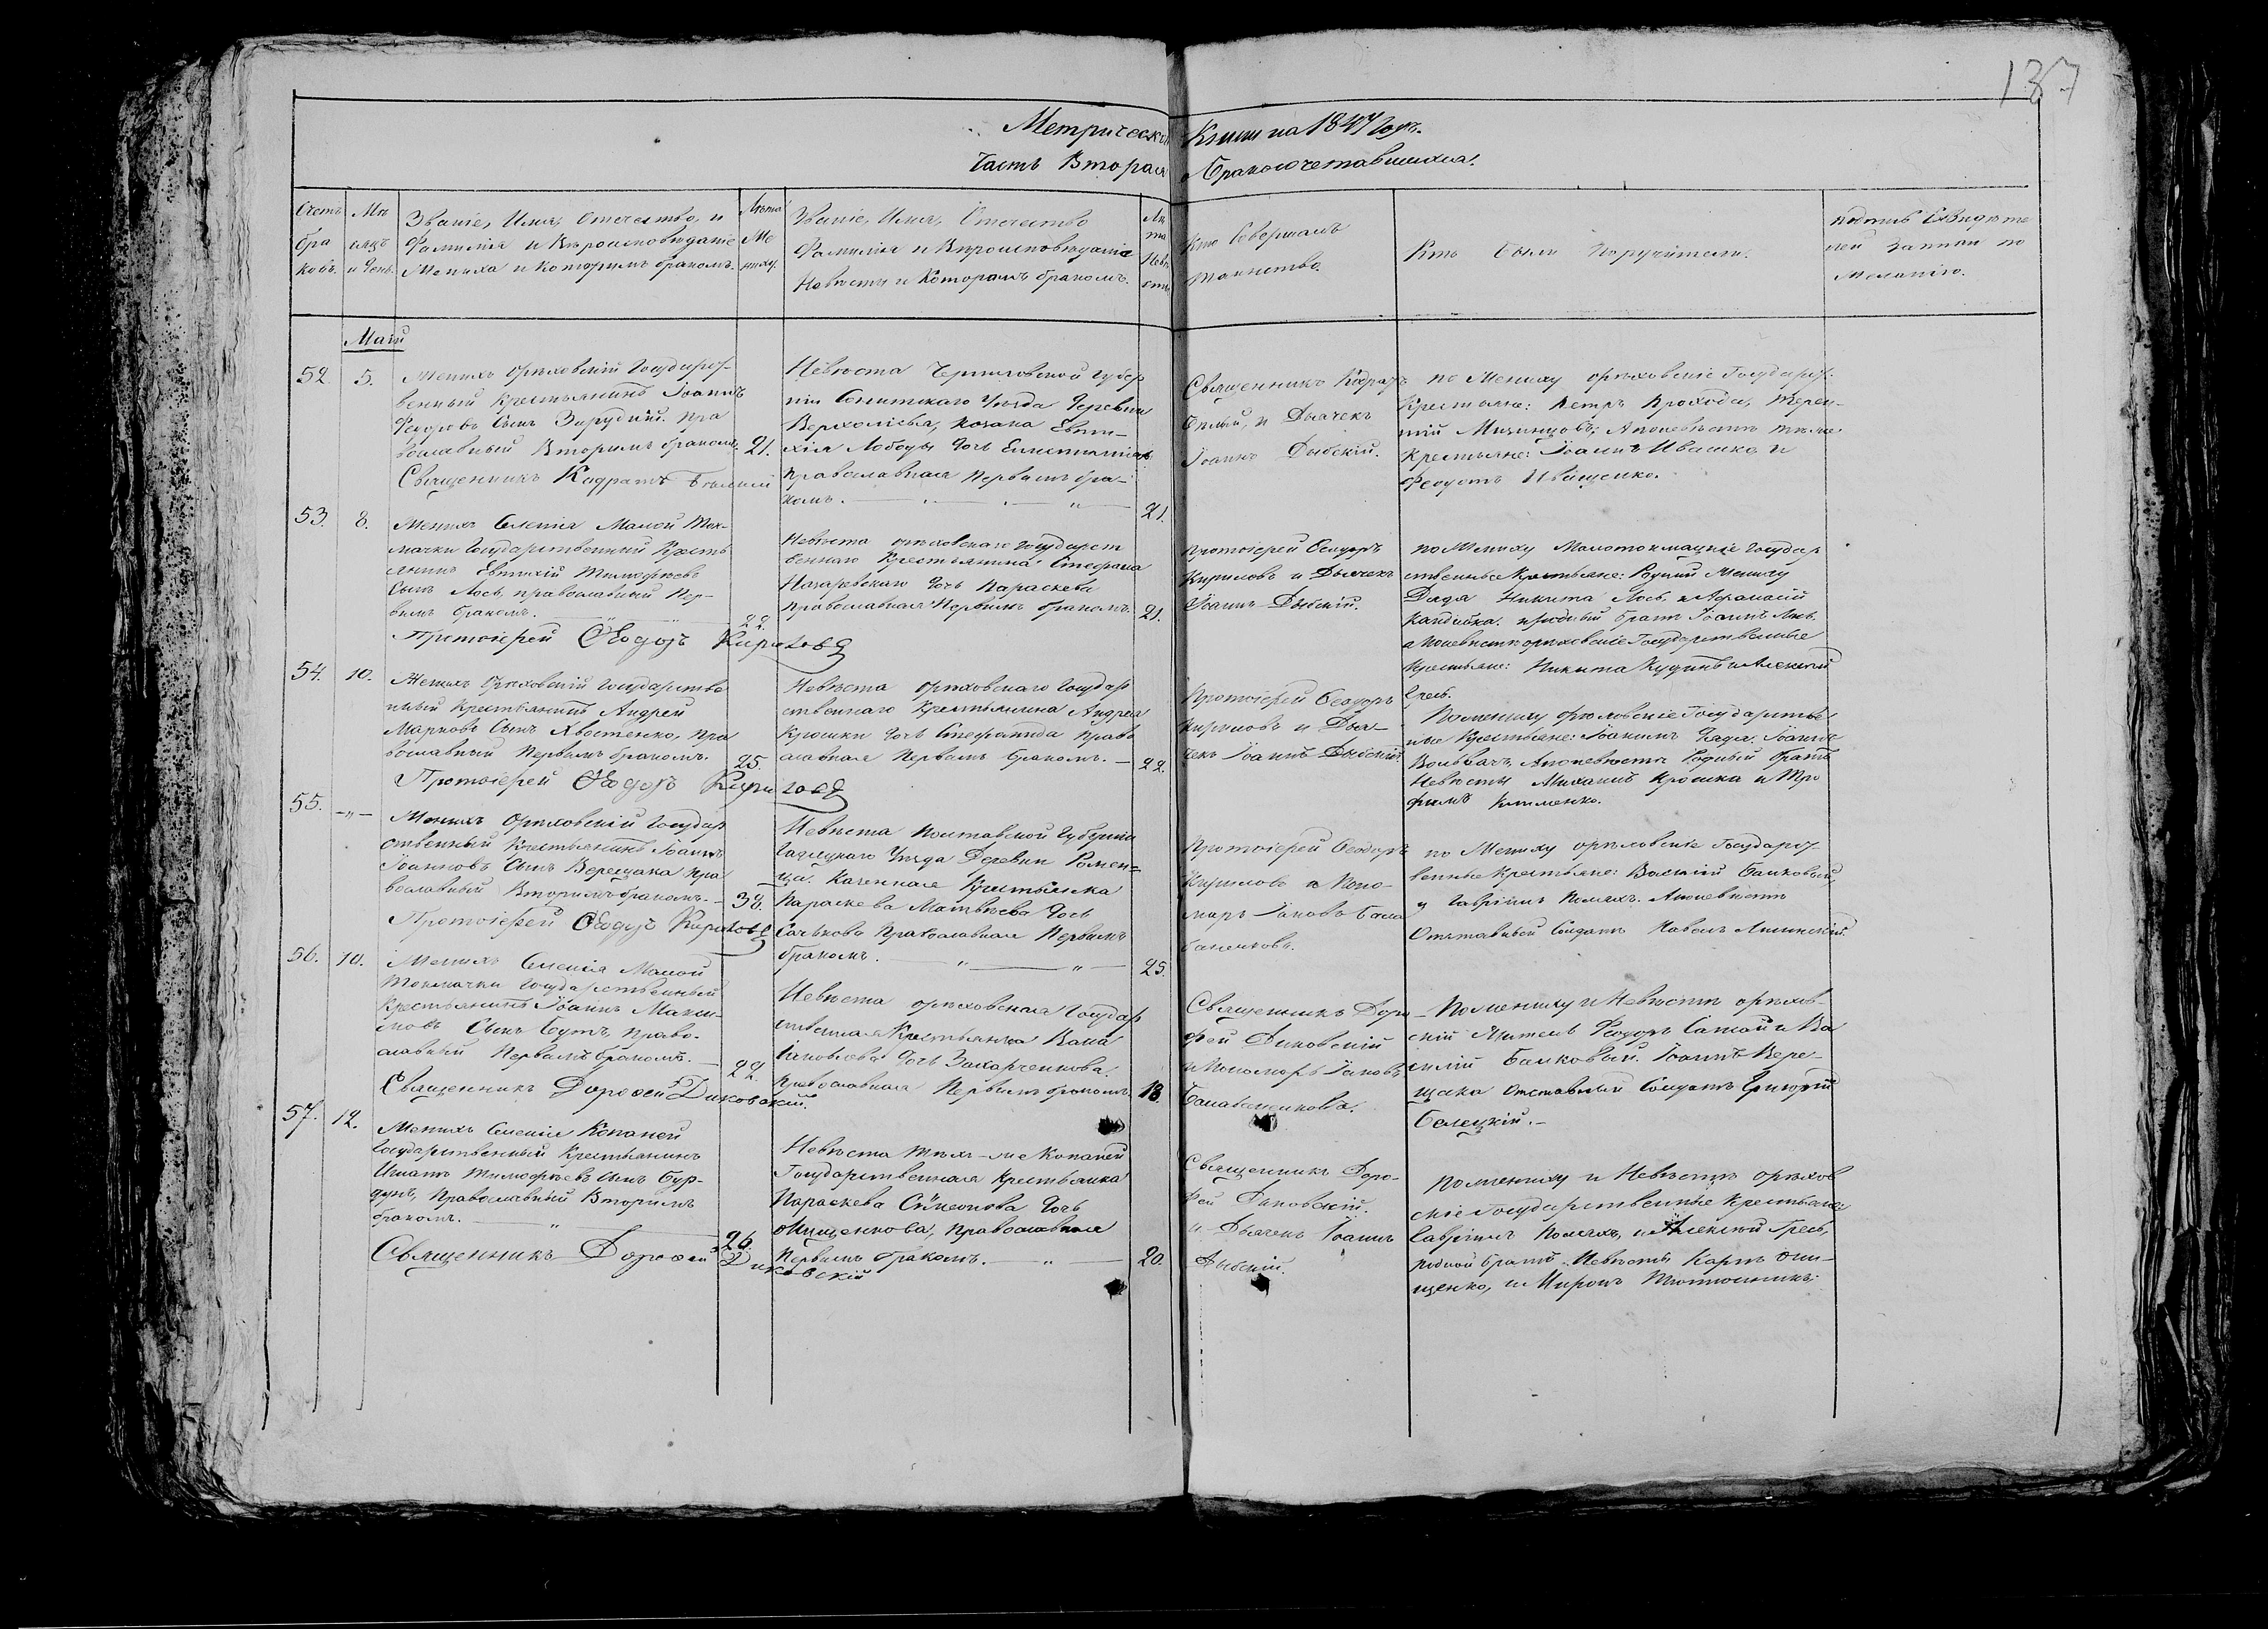 137
Метрической Книги на 1847 годъ.
Часть Вторая о Бракосочетавшихся.
Счетъ браковъ.
Мѣсяцъ и день
Званіе, Имя, Отчество, и
Фамилія и Вѣроисповѣданіе
Жениха и Которимъ бракомъ.
Лѣта Жениху.
Званіе, Имя, Отечество
Фамилія и Вѣроисповѣданіе
Невѣсты и Которымъ бракомъ.
Лѣта Невѣсты
Кто Совершалъ
таинство.
Кто были поручители.
подпись Свидѣте
лей записи по
желанію.
Маій
52. 5.
Женихъ орѣховскій государс-
венный крестьянинъ Іоаннъ
Феодоровъ Сынъ Зарудній. пра
вославный Вторимъ бракомъ. 21.
Священникъ Кодратъ Бѣлый
Невѣста Черниговской губер
ніи Уѣзда Деревни
козака Евти-
хія Лободы дочь
православная Первымъ бра-
комъ. 21.
Священникъ Кодратъ
Бѣлый, и Дьячекъ
Іоаннъ Дыбскій.
по Жениху орѣховскіе Государс.
Крестьяне: Петръ Прохода, Терен-
тій Апоневѣстѣ
крестьяне: Іоаннъ Ивашко и
Феодотъ Иващенко.
53. 8.
Женихъ Селенія Малой Ток-
мачки Государственный Кресть
янинъ Евтихій Тимофѣевъ
Сынъ Лось, православный Пер-
вимъ бракомъ. 22.
Протоіерей Ѳеодоръ Кириловъ
Невѣста орѣховскаго Государст
веннаго Крестьянина Стефана
Назаревскаго дочь Параскева
православная Первимъ бракомъ. 21.
Протоіерей Ѳеодоръ
Кириловъ и Дьячекъ
Іоаннъ Дыбскій.
по Жениху Малотокмацкіе Государ
ственные Крестьяне: Родний Жениху
Дядя Никита Лось, и Афанасій
Кандиба. и родный братъ Іоаннъ Лось.
а поневѣстѣ орѣховскіе Государственные
Крестьяне: Никита Кудинъ и Алексѣй
Гресь.
54. 10.
Женихъ Орѣховскій Государстве
нный крестьянинъ Андрей
Марковъ Сынъ Хвостенко, пра
вославный Первымъ бракомъ. 25.
Протоіерей Ѳеодоръ Кириловъ
Невѣста орѣховскаго Государ
ственнаго Крестьянина Андрея
Крошки дочь Стефанида право
славная Первимъ бракомъ. 22.
Протоіерей Ѳеодоръ
Кириловъ и Дья-
чекъ Іоаннъ Дыбскій.
По жениху орѣховскіе Государстве
ные Крестьяне: Іоакимъ Іоаннъ
Апоневѣстѣ Родный братъ
Невѣсты Михаилъ Крошка и Тро
фимъ Клименко.
55. -"-
Женихъ Орѣховскій Государ
ственный Крестьянинъ Іоаннъ
Іоанновъ Сынъ Верещака пра
вославный Вторимъ бракомъ. 38.
Протоіерей Ѳеодоръ Кириловъ
Невѣста Полтавской Губерніи
Гадяцкаго Уѣзда Деревни Ромен-
ца. Казенная Крестьянка
Параскева Матвѣева дочь
Сачкова православная Первимъ
бракомъ. 25.
Протоіерей Ѳеодоръ
Кириловъ и Поно-
марь Іаковъ Бала
баненковъ.
по Жениху орѣховскіе Государс
венные Крестьяне: Василій Балковый,
и Гавріилъ Помазъ. Апоневѣстѣ
Отставный Солдатъ Павелъ
56. 10.
Женихъ Селенія Малой
Токмачки Государственный
Крестьянинъ Іоаннъ Макси-
мовъ Сынъ Бутъ, право-
славный Первымъ бракомъ. 22.
Священникъ Дорофей Диковскій.
Невѣста орѣховская Государ
ственная Крестьянка
Іаковлева дочь Захарченкова.
Православная Первимъ бракомъ. 18.
Священникъ Доро
фей Диковскій
и Пономарь Іаковъ
Балабаненковъ.
По жениху и Невѣстѣ орѣхов-
скій Житель Феодоръ и Ва
силій Балковый. Іоаннъ Вере-
щака отставный Солдатъ Григорій
Белецкій.
57. 12.
Женихъ Селенія Копаней
Государственный Крестьянинъ
Игнатъ Тимофѣевъ Сынъ Бур-
дунъ, Православный Вторимъ
бракомъ. 26.
Священникъ Дорофей Диковскій
Невѣста тѣхъ-же Копаней
Государственная Крестьянка
Параскева Симеонова дочь
Онищенкова, православная
Первымъ бракомъ. 20.
Священникъ Доро-
фей Диковскій.
и Дьячекъ Іоаннъ
Дыбскій.
По жениху и Невѣстѣ орѣхов
скіе Государственные Крестьяне
Гавріилъ Помазъ, и Алексѣй Гресь,
родной братъ Невѣсты Карпъ Они-
щенко, и Миронъ Тютюнникъ.